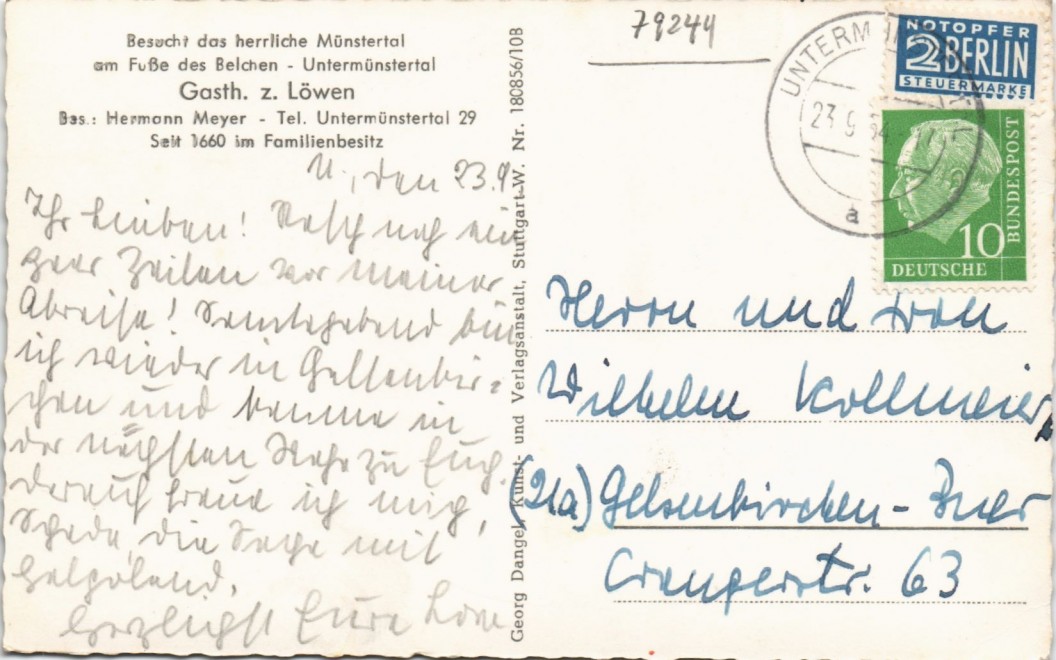 79244
Besucht das herrliche Münstertal
am Fuße des Belchen - Untermünstertal
Gasth. z. Löwen
Bes.: Hermann Meyer - Tel. Untermünstertal 29
Seit 1660 im Familienbesitz
U., den 23.9.
Ihr Lieben! Rasch noch ein
paar Zeilen vor meiner
Abreise! Samstagabend bin
ich wieder in Gelsenkir-
chen und komme in
der nächsten Woche zu Euch,
darauf freue ich mich,
Schade, die Sache mit
Helgoland.
Herzlichst Eure
Georg Dangel, Kunst- und Verlagsanstalt, Stuttgart-W. Nr. 180856/10B
NOTOPFER
2 BERLIN
STEUERMARKE
UNTERM
23 9 54
a
10
DEUTSCHE
BUNDESPOST
Herrn und Frau
Wilhelm Kollmeier,
(21a) Gelsenkirchen-Buer
Crangerstr. 63